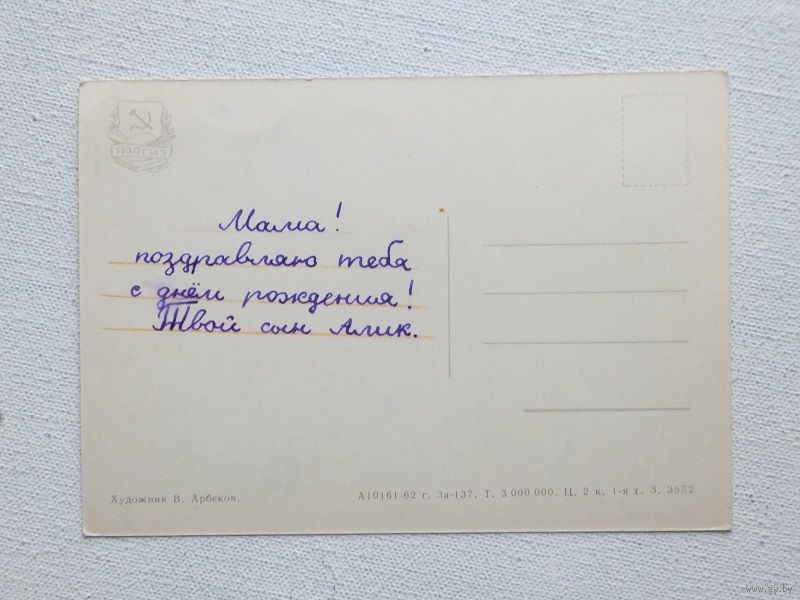 ИЗОГИЗ
Мама!
поздравляю тебя
с днём рождения!
Твой сын Алик.
Художник В. Арбеков.
А10161-62 г. За-137. Т. 3 000 000. Ц. 2 к. 1-я т. З. 3552
www.ay.by